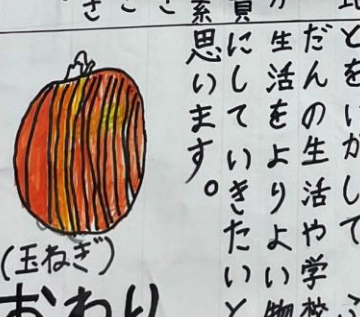 とをいかして、ふ
だんの生活や学校
生活をよりよい物
にしていきたいと
思います。
(玉ねぎ)
おわり